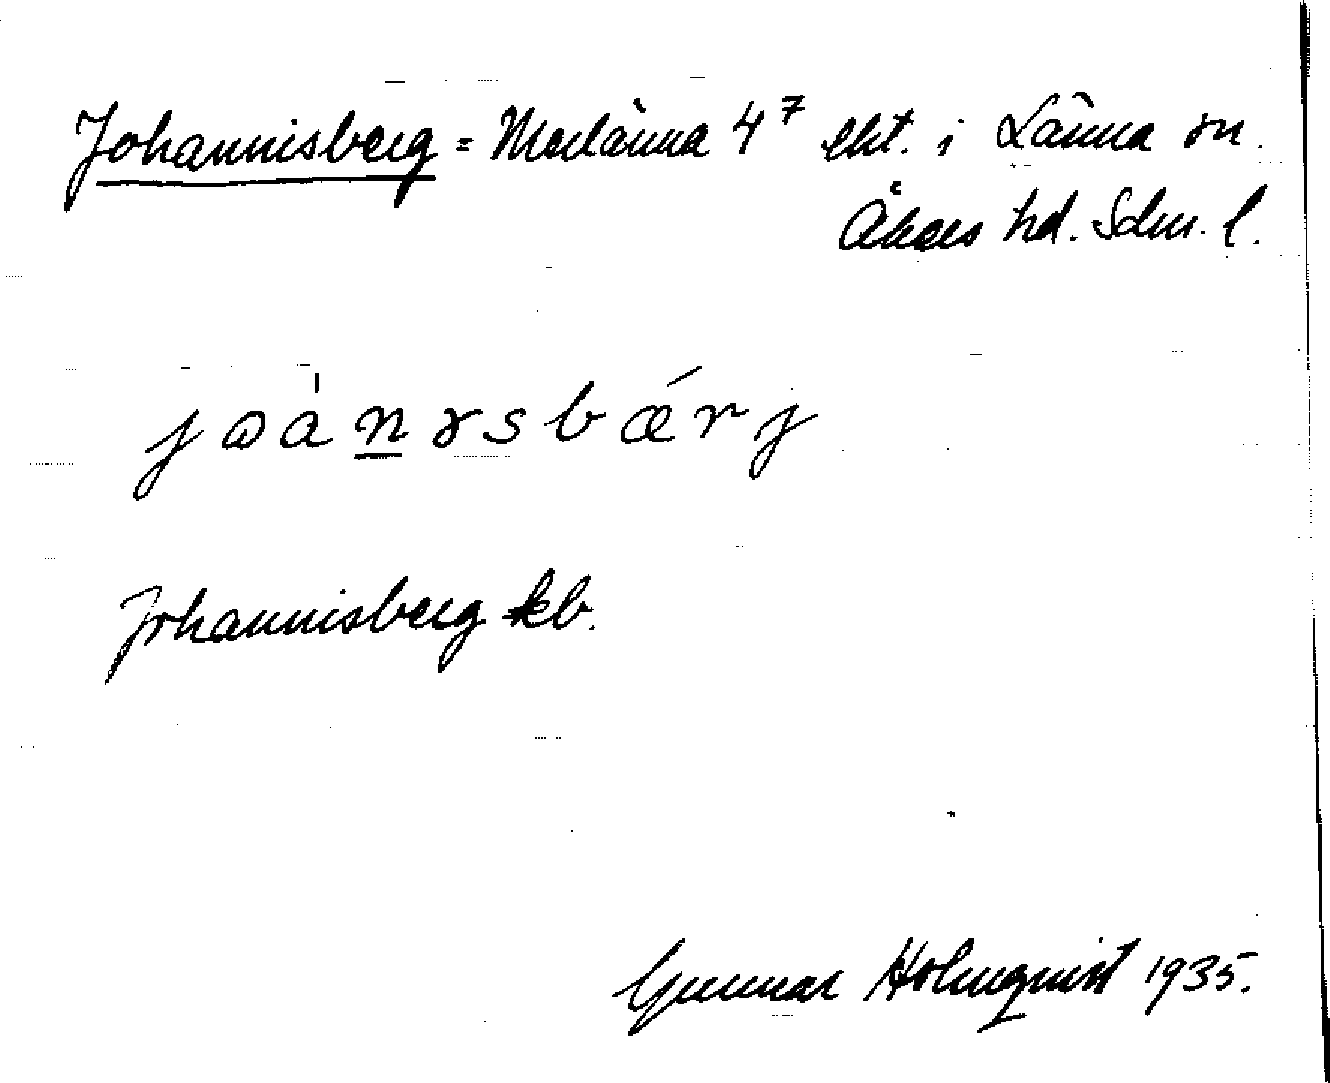 Johannisberg = Merlänna 4⁷ eht. i Länna sn.
Åkers hd. Sdm. l.
jɷàn̲ɤsbǽrj
Johannisberg kb.
Gunnar Holmqvist 1935.